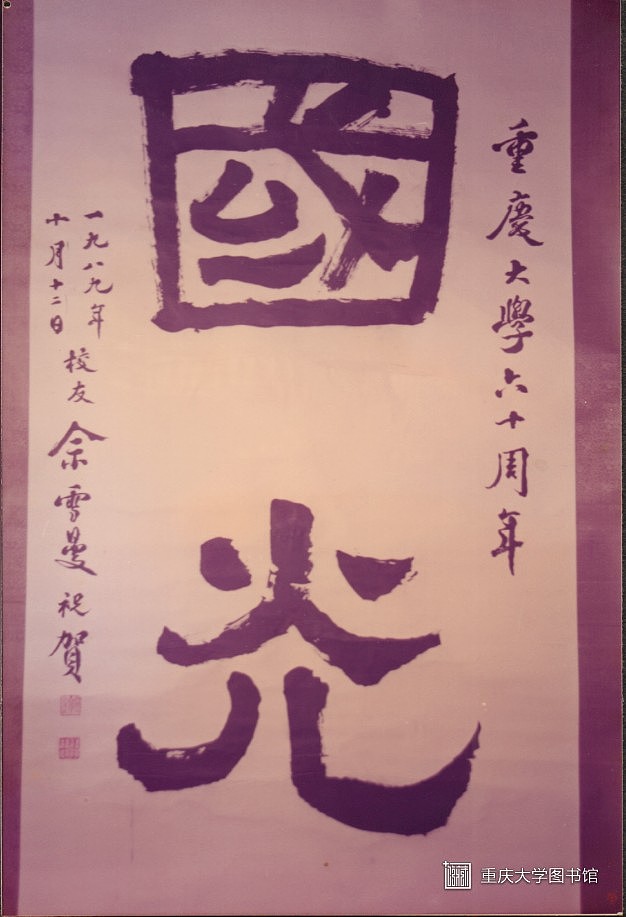 國光
重慶大學六十周年
一九八九年
十月十二日
校友余雪曼祝賀
重庆大学图书馆